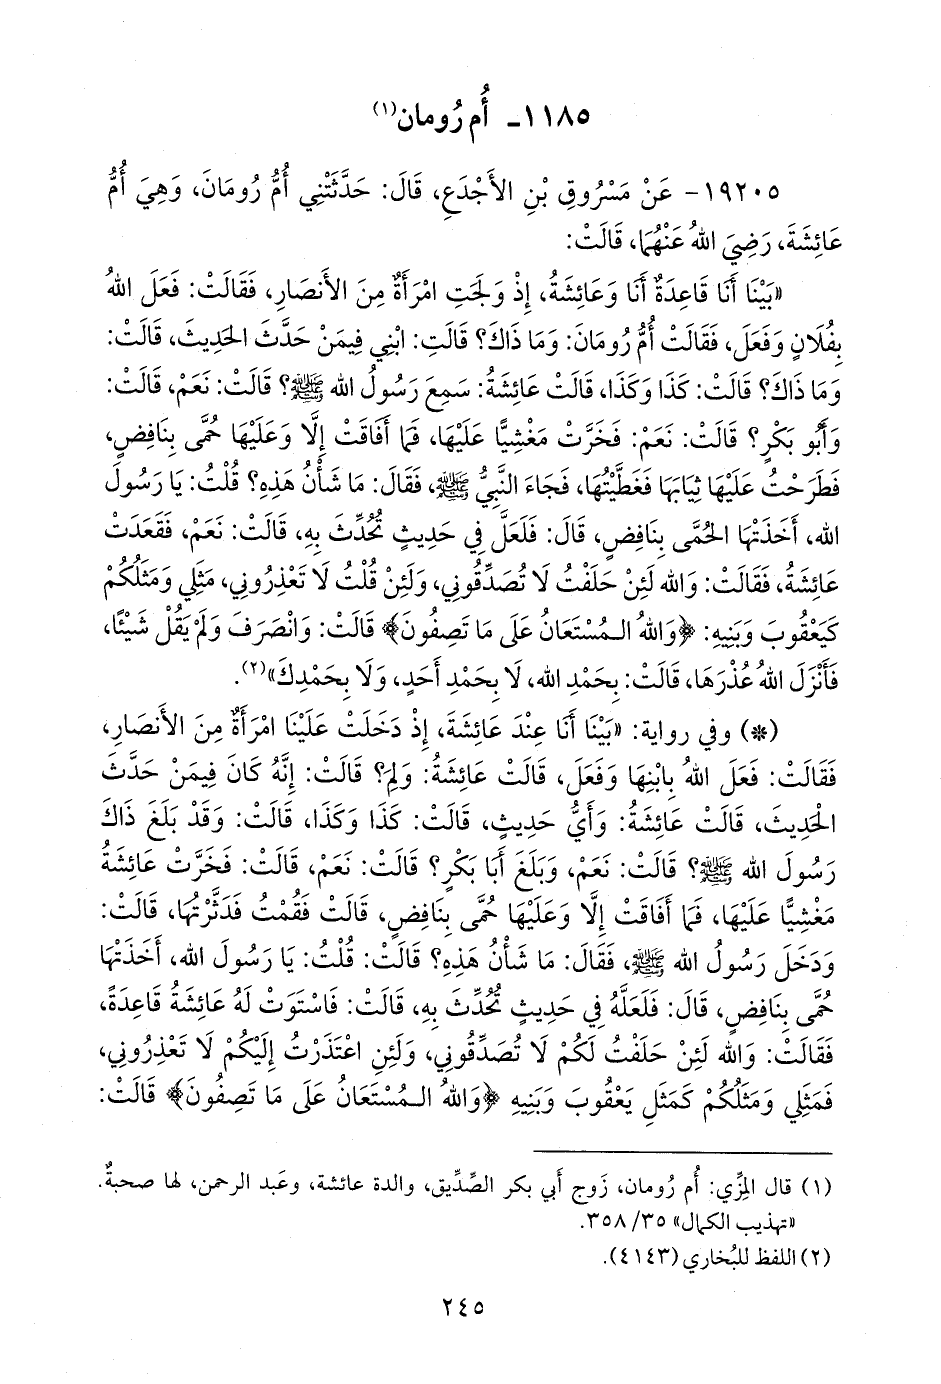 ١١٨٥ـ أُم رُومان(١)
١٩٢٠٥- عَنْ مَسْرُوقِ بْنِ الأَجْدَعِ، قَالَ: حَدَّثَتْنِي أُمُّ رُومَانَ، وَهِيَ أُمُّ
عَائِشَةَ، رَضِيَ اللهُ عَنْهُمَا، قَالَتْ:
«بَيْنَا أَنَا قَاعِدَةٌ أَنَا وَعَائِشَةُ، إِذْ وَلَجَتِ امْرَأَةٌ مِنَ الأَنْصَارِ، فَقَالَتْ: فَعَلَ اللهُ
بِفُلَانٍ وَفَعَلَ، فَقَالَتْ أُمُّ رُومَانَ: وَمَا ذَاكَ؟ قَالَتِ: ابْنِي فِيمَنْ حَدَّثَ الحَدِيثَ، قَالَتْ:
وَمَا ذَاكَ؟ قَالَتْ: كَذَا وَكَذَا، قَالَتْ عَائِشَةُ: سَمِعَ رَسُولُ الله ﷺ؟ قَالَتْ: نَعَمْ، قَالَتْ:
وَأَبُو بَكْرٍ؟ قَالَتْ: نَعَمْ: فَخَرَّتْ مَغْشِيًّا عَلَيْهَا، فَمَا أَفَاقَتْ إِلَّا وَعَلَيْهَا حُمَّى بِنَافِضٍ،
فَطَرَحْتُ عَلَيْهَا ثِيَابَهَا فَغَطَّيْتُهَا، فَجَاءَ النَّبِيُّ ﷺ، فَقَالَ: مَا شَأْنُ هَذِهِ؟ قُلْتُ: يَا رَسُولَ
الله، أَخَذَتْهَا الحُمَّى بِنَافِضٍ، قَالَ: فَلَعَلَّ فِي حَدِيثٍ تُحُدِّثَ بِهِ، قَالَتْ: نَعَمْ، فَقَعَدَتْ
عَائِشَةُ، فَقَالَتْ: وَالله لَئِنْ حَلَفْتُ لَا تُصَدِّقُونِي، وَلَئِنْ قُلْتُ لَا تَعْذِرُونِي، مَثَلِي وَمَثَلُكُمْ
كَيَعْقُوبَ وَبَنِيهِ: ﴿وَاللهُ الـمُسْتَعَانُ عَلَى مَا تَصِفُونَ﴾ قَالَتْ: وَانْصَرَفَ وَلَمْ يَقُلْ شَيْئًا،
فَأَنْزَلَ اللهُ عُذْرَهَا، قَالَتْ: بِحَمْدِ الله، لَا بِحَمْدِ أَحَدٍ، وَلَا بِحَمْدِكَ»(٢).
(*) وفي رواية: «بَيْنَا أَنَا عِنْدَ عَائِشَةَ، إِذْ دَخَلَتْ عَلَيْنَا امْرَأَةٌ مِنَ الأَنْصَارِ،
فَقَالَتْ: فَعَلَ اللهُ بِابْنِهَا وَفَعَلَ، قَالَتْ عَائِشَةُ: وَلِمَ؟ قَالَتْ: إِنَّهُ كَانَ فِيمَنْ حَدَّثَ
الحَدِيثَ، قَالَتْ عَائِشَةُ: وَأَيُّ حَدِيثٍ، قَالَتْ: كَذَا وَكَذَا، قَالَتْ: وَقَدْ بَلَغَ ذَاكَ
رَسُولَ الله ﷺ؟ قَالَتْ: نَعَمْ، وَبَلَغَ أَبَا بَكْرٍ؟ قَالَتْ: نَعَمْ، قَالَتْ: فَخَرَّتْ عَائِشَةُ
مَغْشِيًّا عَلَيْهَا، فَمَا أَفَاقَتْ إِلَّا وَعَلَيْهَا حُمَّى بِنَافِضٍ، قَالَتْ فَقُمْتُ فَدَثَّرْتُهَا، قَالَتْ:
وَدَخَلَ رَسُولُ الله ﷺ، فَقَالَ: مَا شَأْنُ هَذِهِ؟ قَالَتْ: قُلْتُ: يَا رَسُولَ الله، أَخَذَتْهَا
حُمَّى بِنَافِضٍ، قَالَ: فَلَعَلَّهُ فِي حَدِيثٍ تُحُدِّثَ بِهِ، قَالَتْ: فَاسْتَوَتْ لَهُ عَائِشَةُ قَاعِدَةً،
فَقَالَتْ: وَالله لَئِنْ حَلَفْتُ لَكُمْ لَا تُصَدِّقُونِي، وَلَئِنِ اعْتَذَرْتُ إِلَيْكُمْ لَا تَعْذِرُونِي،
فَمَثَلِي وَمَثَلُكُمْ كَمَثَلِ يَعْقُوبَ وَبَنِيهِ ﴿وَاللهُ الـمُسْتَعَانُ عَلَى مَا تَصِفُونَ﴾ قَالَتْ:
(١) قال المِزِّي: أُم رُومان، زَوج أَبي بكر الصِّدِّيق، والدة عائشة، وعَبد الرحمن، لها صحبةٌ.
«تهذيب الكمال» ٣٥/ ٣٥٨.
(٢) اللفظ للبُخاري (٤١٤٣).
٢٤٥